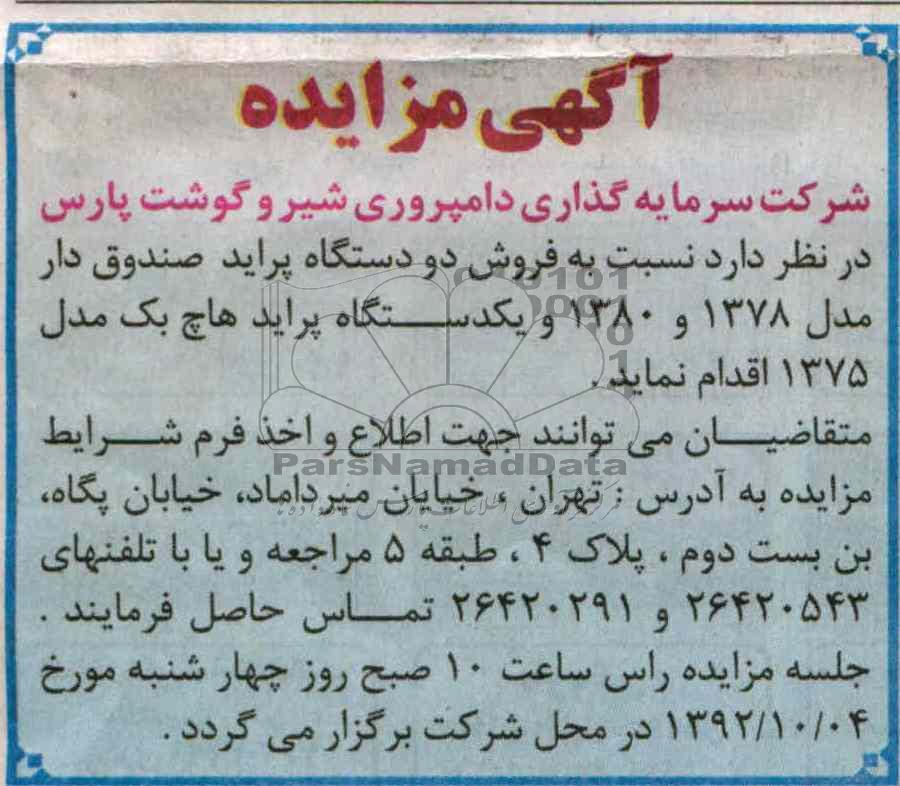 آگهی مزایده
شرکت سرمایه گذاری دامپروری شیر و گوشت پارس
در نظر دارد نسبت به فروش دو دستگاه پراید صندوق دار
مدل ۱۳۷۸ و ۱۳۸۰ و یکدستگاه پراید هاچ بک مدل
۱۳۷۵ اقدام نماید.
متقاضیان می توانند جهت اطلاع و اخذ فرم شرایط
مزایده به آدرس : تهران ، خیابان میرداماد، خیابان پگاه،
بن بست دوم ، پلاک ۴ ، طبقه ۵ مراجعه و یا با تلفنهای
۲۶۴۲۰۵۴۳ و ۲۶۴۲۰۲۹۱ تماس حاصل فرمایند .
جلسه مزایده راس ساعت ۱۰ صبح روز چهار شنبه مورخ
۱۳۹۲/۱۰/۰۴ در محل شرکت برگزار می گردد .
ParsNamadData